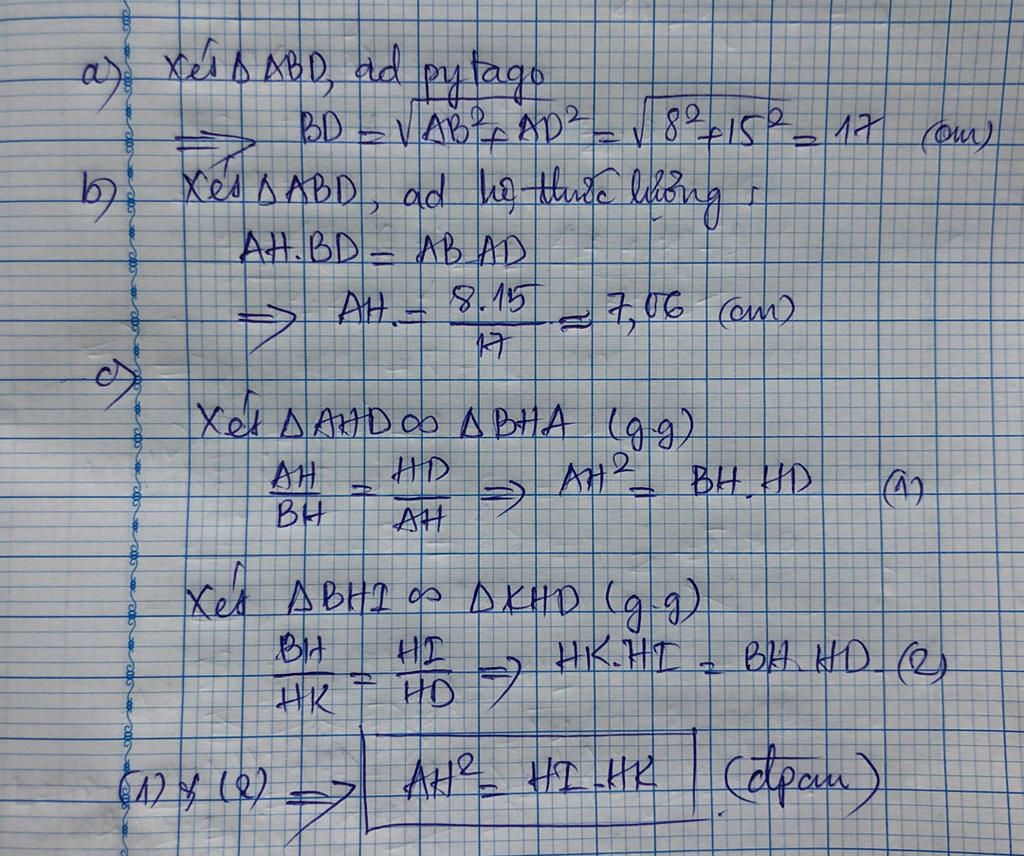 a) Xét Δ ABD, ad pytago
⇒ BD = √AB² + AD² = √8² + 15² = 17 (cm)
b) Xét Δ ABD, ad hệ thức lượng :
AH.BD = AB.AD
⇒ AH = 8.15/17 = 7,06 (cm)
c)
Xét Δ AHD ∞ Δ BHA (g.g)
AH/BH = HD/AH ⇒ AH² = BH.HD (1)
Xét Δ BHI ∞ Δ KHD (g.g)
BH/HK = HI/HD ⇒ HK.HI = BH.HD (2)
(1) & (2) ⇒ AH² = HI.HK (đpcm)